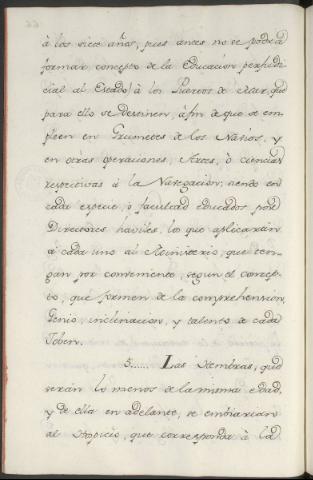 à los siete años, pues antes no se podrá
formar concepto de la Educacion perjudi
cial al Estado, à los Puertos de Mar que
para ello se destinen, à fin de que se em
pleen en Grumetes de los Navios, y
en otras operaciones, Artes, ò ciencias
respectivas à la Navegacion, siendo en
cada especie, ò facultad educados por
Directores haviles, lo que aplicarán
à cada uno al Ministerio, que ten-
gan por conveniente, segun el concep-
to, que formen de la comprehension,
Genio, inclinacion, y talento de cada
Joben.
5..... Las Hembras, que
serán lo menos de la misma edad,
y de ella en adelante, se embiarian
al Hospicio, que corresponda à la